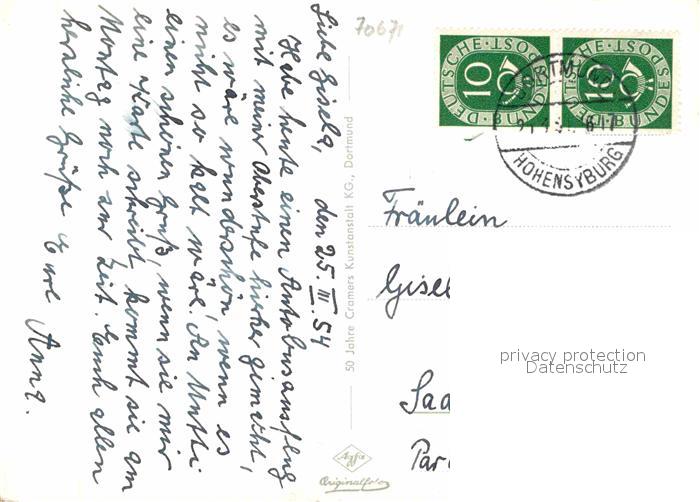 70671
Liebe Gisela,
den 25. III. 54
Habe heute einen Autobusausflug
mit meiner Oberstufe hierher gemacht,
es wäre wunderschön, wenn es
nicht so kalt wäre. An Mutti
einen schönen Gruß, wenn sie mir
eine Karte schreibt, kommt sie am
Montag noch zur Zeit. Euch allen
herzliche Grüße Eure Anna.
50 Jahre Cramers Kunstanstalt KG., Dortmund
Agfa
Originalfoto
DEUTSCHE · BUNDESPOST
10
DEUTSCHE · BUNDESPOST
10
DORTMUND
HOHENSYBURG
Fräulein
Gisel
Saa
Par
privacy protection
Datenschutz